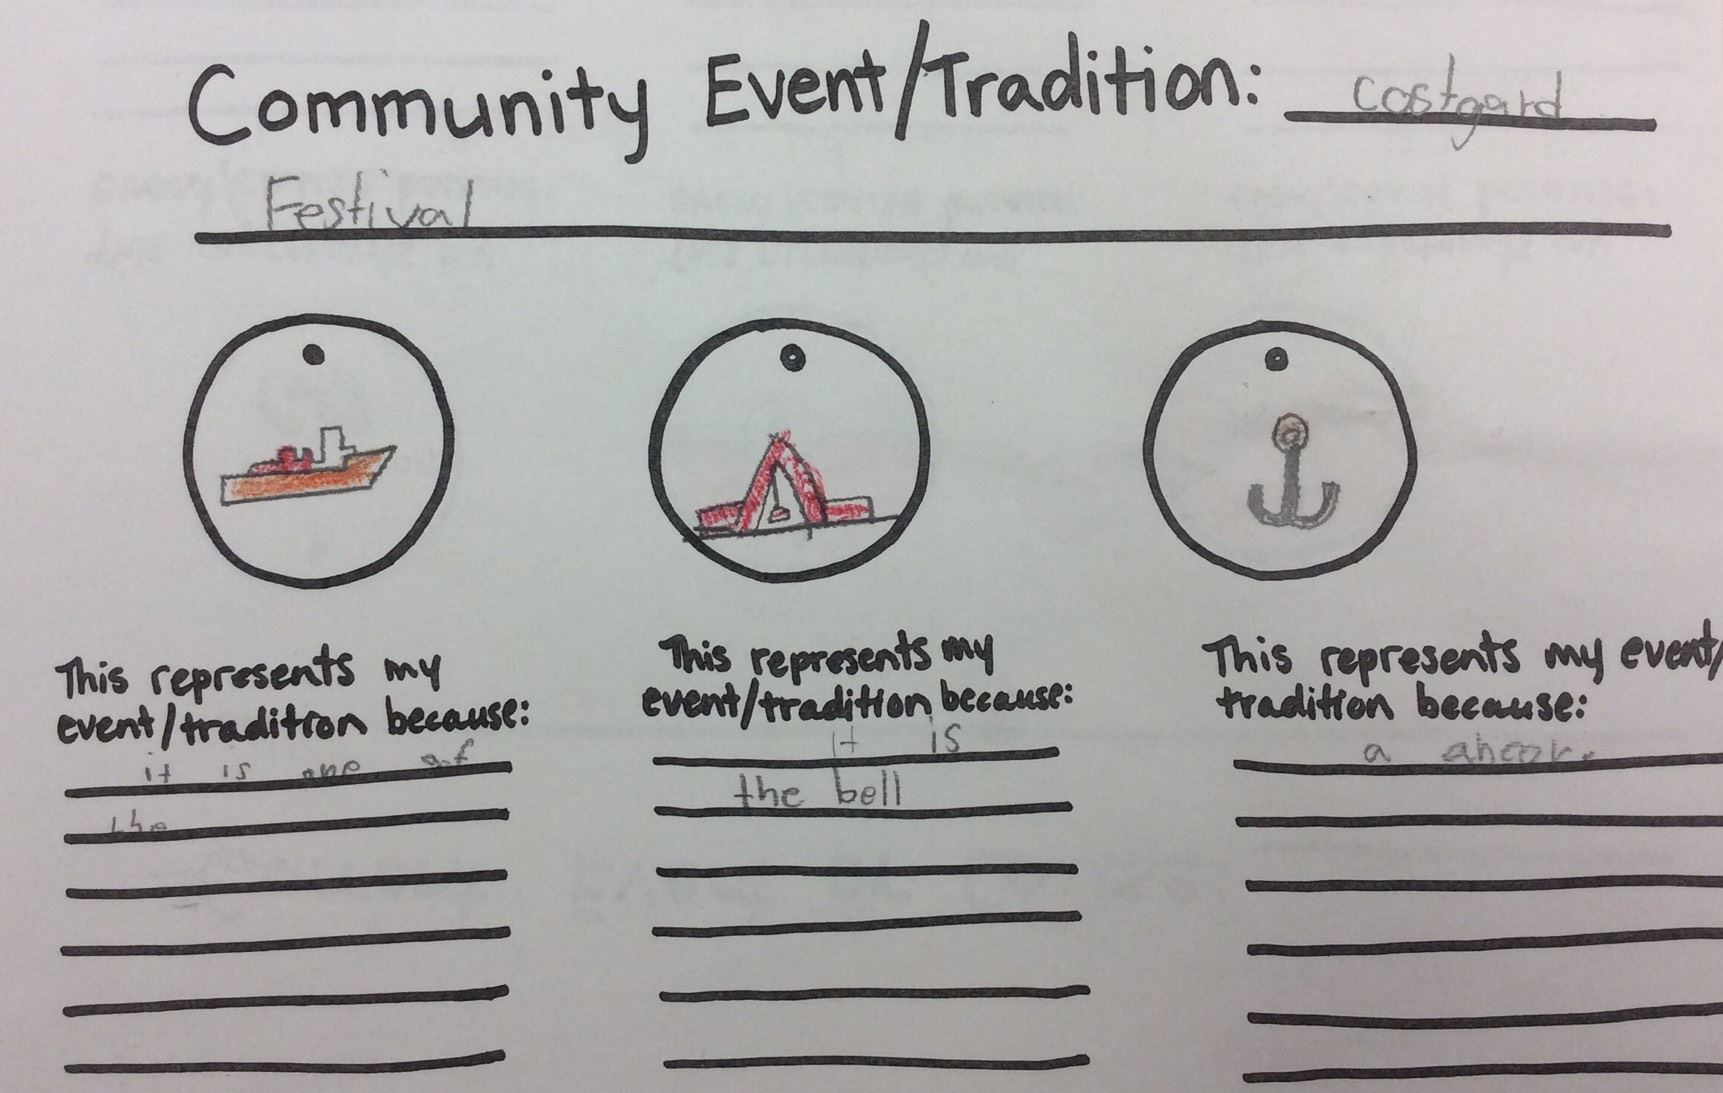 Community Event/Tradition: Costgard
Festival
This represents my
event/tradition because:
it is one of
the
This represents my
event/tradition because:
it is
the bell
This represents my event/
tradition because:
a